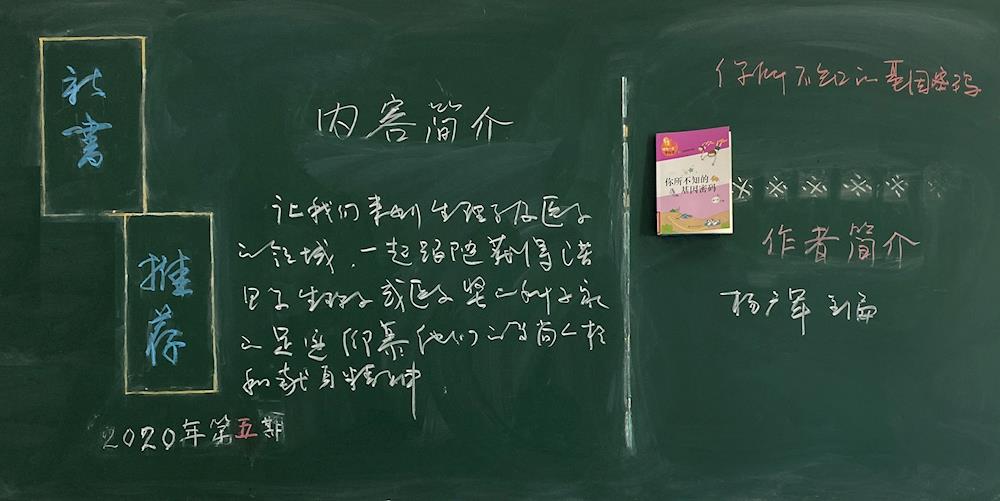 新书
推荐
2020年第五期
内容简介
让我们来到生理学及医学
的领域，一起跟随获得诺
贝尔生理学或医学奖的科学家
的足迹仰慕他们的高尚人格
和献身精神
你所不知的基因密码
你所不知的
基因密码
※※※※※※
作者简介
杨广军 主编